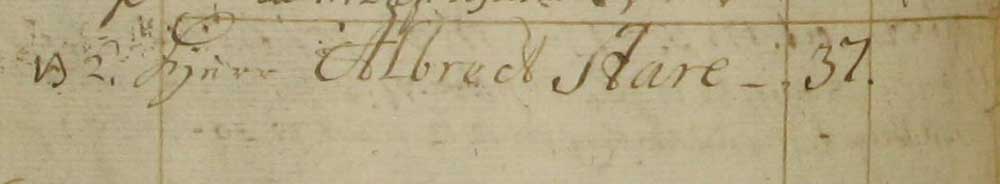 2. Herr Albrect Stare - 37.